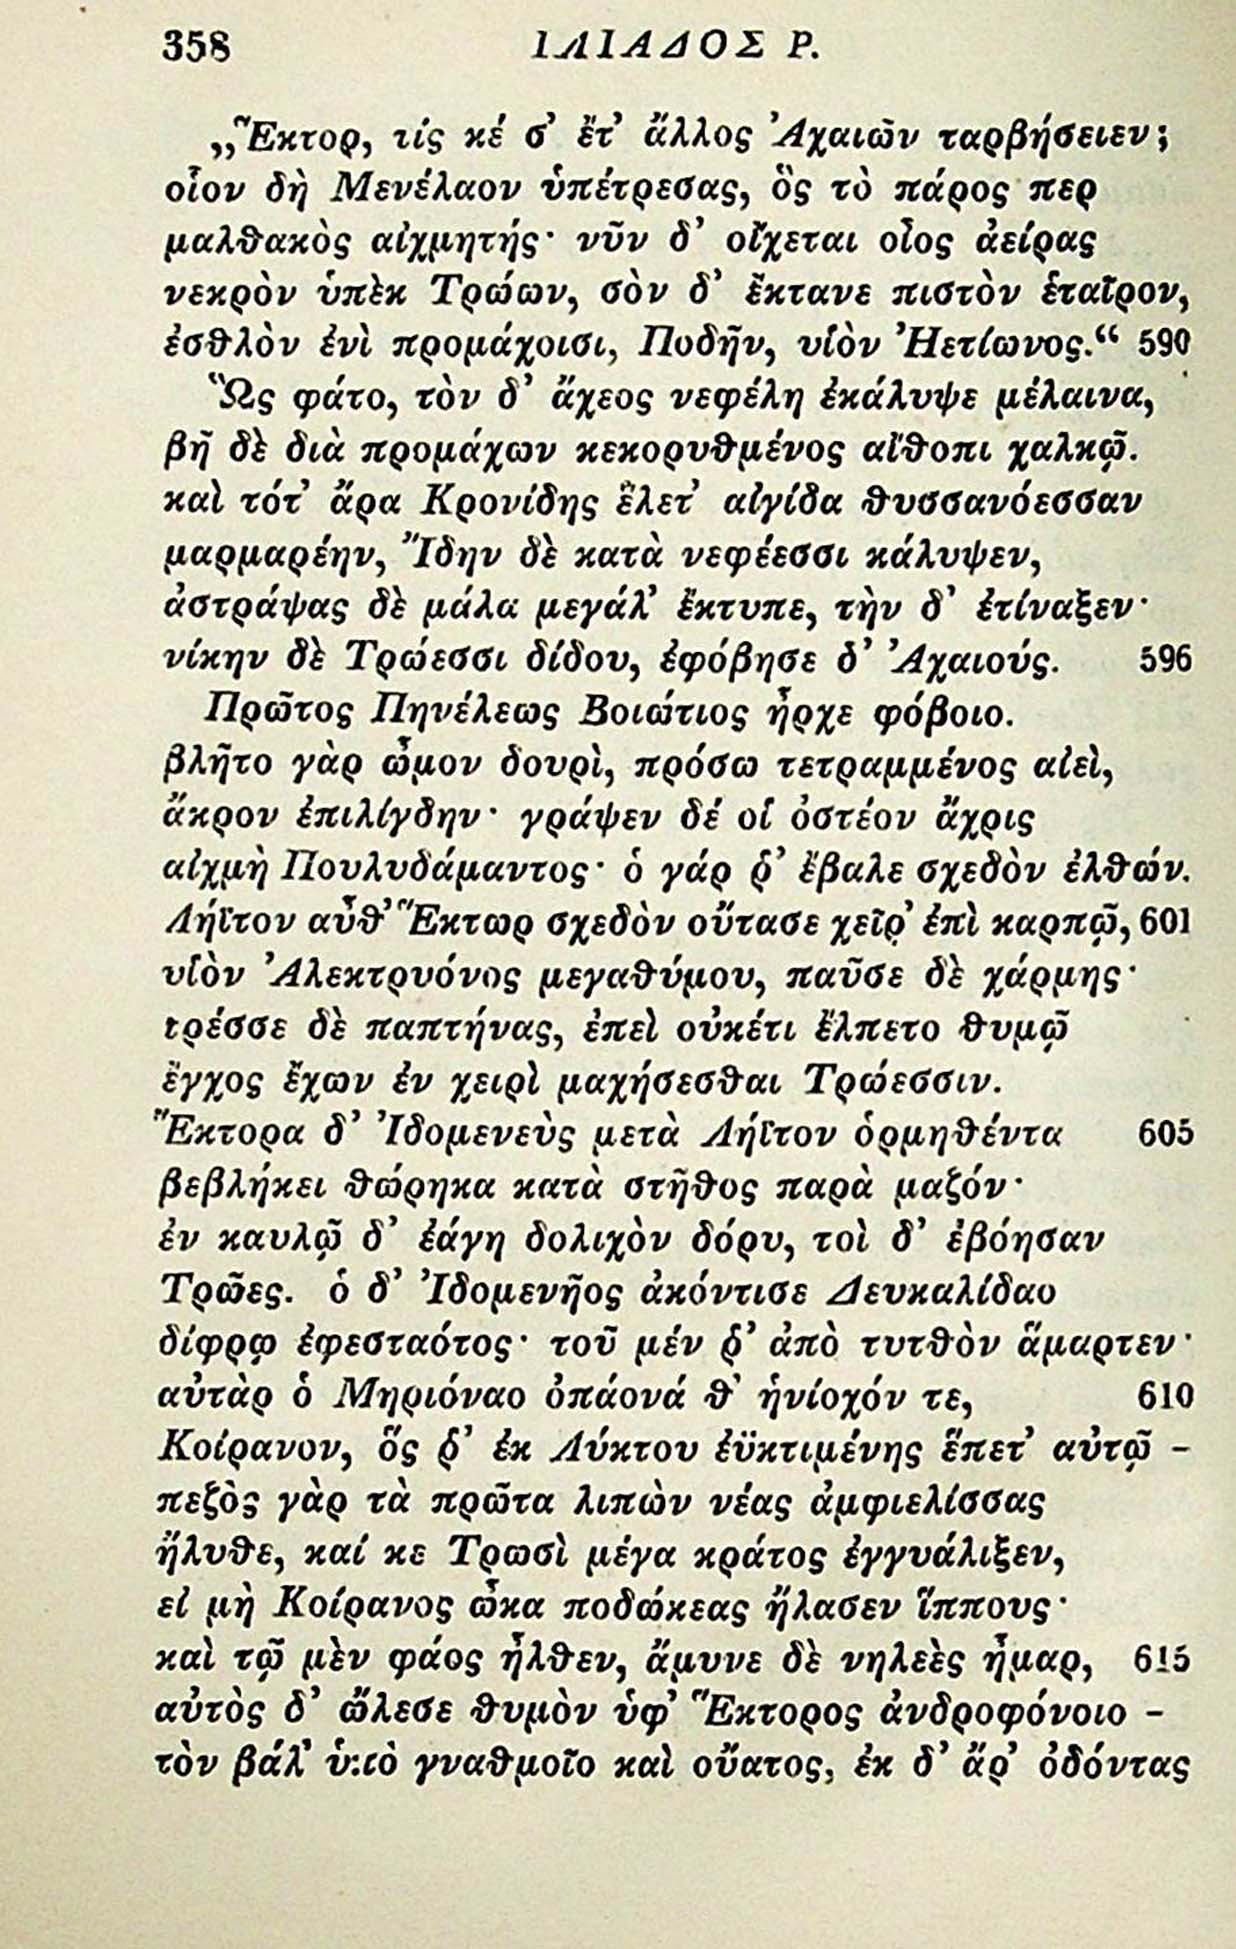 358 ΙΛΙΑΔΟΣ Ρ.
„Ἕκτορ, τίς κέ σ’ ἔτ’ ἄλλος Ἀχαιῶν ταρβήσειεν;
οἷον δὴ Μενέλαον ὑπέτρεσας, ὃς τὸ πάρος περ
μαλθακὸς αἰχμητής· νῦν δ’ οἴχεται οἶος ἀείρας
νεκρὸν ὑπὲκ Τρώων, σὸν δ’ ἔκτανε πιστὸν ἑταῖρον,
ἐσθλὸν ἐνὶ προμάχοισι, Ποδῆν, υἱὸν Ἠετίωνος.“ 590
Ὣς φάτο, τὸν δ’ ἄχεος νεφέλη ἐκάλυψε μέλαινα,
βῆ δὲ διὰ προμάχων κεκορυθμένος αἴθοπι χαλκῷ.
καὶ τότ’ ἄρα Κρονίδης ἕλετ’ αἰγίδα θυσσανόεσσαν
μαρμαρέην, Ἴδην δὲ κατὰ νεφέεσσι κάλυψεν,
ἀστράψας δὲ μάλα μεγάλ’ ἔκτυπε, τὴν δ’ ἐτίναξεν·
νίκην δὲ Τρώεσσι δίδου, ἐφόβησε δ’ Ἀχαιούς. 596
Πρῶτος Πηνέλεως Βοιώτιος ἦρχε φόβοιο.
βλῆτο γὰρ ὦμον δουρὶ, πρόσω τετραμμένος αἰεὶ,
ἄκρον ἐπιλίγδην· γράψεν δέ οἱ ὀστέον ἄχρις
αἰχμὴ Πουλυδάμαντος· ὁ γάρ ῥ’ ἔβαλε σχεδὸν ἐλθών.
Λήϊτον αὖθ’ Ἕκτωρ σχεδὸν οὔτασε χεῖρ’ ἐπὶ καρπῷ, 601
υἱὸν Ἀλεκτρυόνος μεγαθύμου, παῦσε δὲ χάρμης·
τρέσσε δὲ παπτήνας, ἐπεὶ οὐκέτι ἔλπετο θυμῷ
ἔγχος ἔχων ἐν χειρὶ μαχήσεσθαι Τρώεσσιν.
Ἕκτορα δ’ Ἰδομενεὺς μετὰ Λήϊτον ὁρμηθέντα 605
βεβλήκει θώρηκα κατὰ στῆθος παρὰ μαζόν·
ἐν καυλῷ δ’ ἐάγη δολιχὸν δόρυ, τοὶ δ’ ἐβόησαν
Τρῶες. ὁ δ’ Ἰδομενῆος ἀκόντισε Δευκαλίδαο
δίφρῳ ἐφεσταότος· τοῦ μέν ῥ’ ἀπὸ τυτθὸν ἅμαρτεν·
αὐτὰρ ὁ Μηριόναο ὀπάονά θ’ ἡνίοχόν τε, 610
Κοίρανον, ὅς ῥ’ ἐκ Λύκτου ἐϋκτιμένης ἕπετ’ αὐτῷ –
πεζὸς γὰρ τὰ πρῶτα λιπὼν νέας ἀμφιελίσσας
ἤλυθε, καί κε Τρωσὶ μέγα κράτος ἐγγυάλιξεν,
εἰ μὴ Κοίρανος ὦκα ποδώκεας ἤλασεν ἵππους·
καὶ τῷ μὲν φάος ἦλθεν, ἄμυνε δὲ νηλεὲς ἦμαρ, 615
αὐτὸς δ’ ὤλεσε θυμὸν ὑφ’ Ἕκτορος ἀνδροφόνοιο –
τὸν βάλ’ ὑπὸ γναθμοῖο καὶ οὔατος, ἐκ δ’ ἄρ’ ὀδόντας